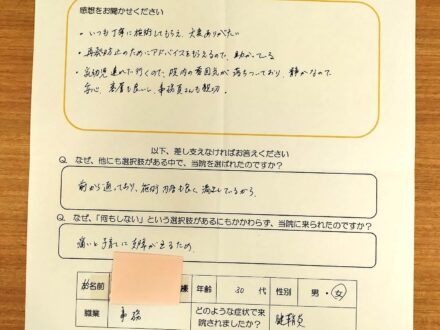 感想をお聞かせください
・いつも丁寧に施術してもらえ、大変ありがたい
・再発防止のためにアドバイスをもらえるので、助かっている
・乳幼児連れで行くので、院内の雰囲気が落ちついており、静かなので
安心、衛生も良いし、事務員さんも親切。
以下、差し支えなければお答えください
Q. なぜ、他にも選択肢がある中で、当院を選ばれたのですか?
前から通っており、施術内容も良く満足しているから。
Q. なぜ、「何もしない」という選択肢があるにもかかわらず、当院に来られたのですか?
痛いと子育てに支障が出るため
お名前 様 年齢 30代 性別 男・女
職業 事務 どのような症状で来院されましたか? 腱鞘炎